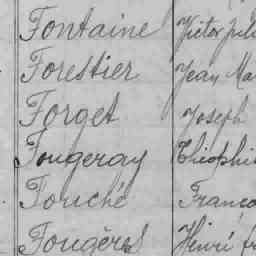 Fontaine Victor Jul
Forestier Jean Ma
Forget Joseph
Fougeray Théophi
Fouché Franço
Fougères Henri fr